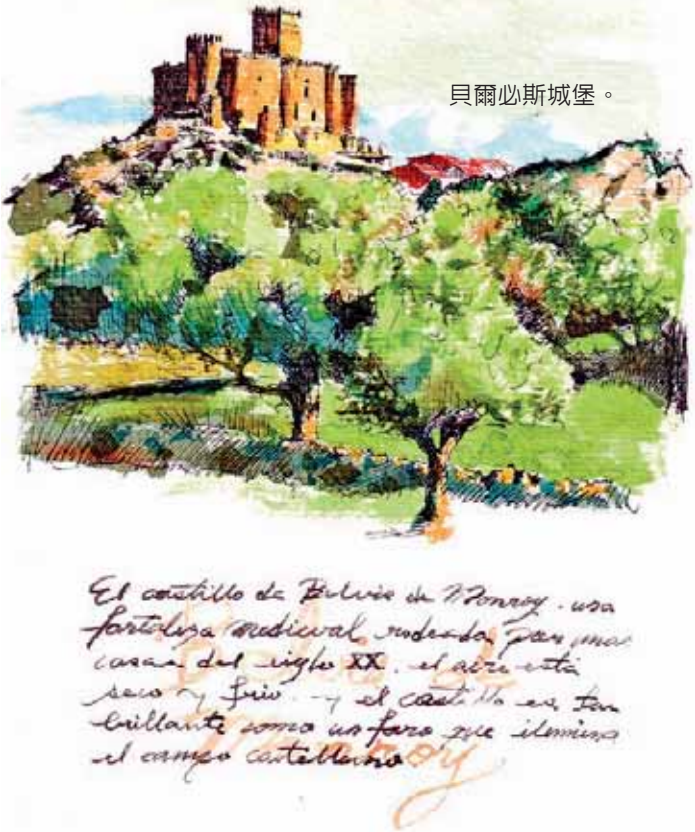 貝爾必斯城堡。
El castillo de Belvis de Monroy. una
fortaleza medieval, rodeada por unas
casas del siglo XX. el aire está
seco y frio. y el castillo es tan
brillante como un faro que ilumina
el campo castellano